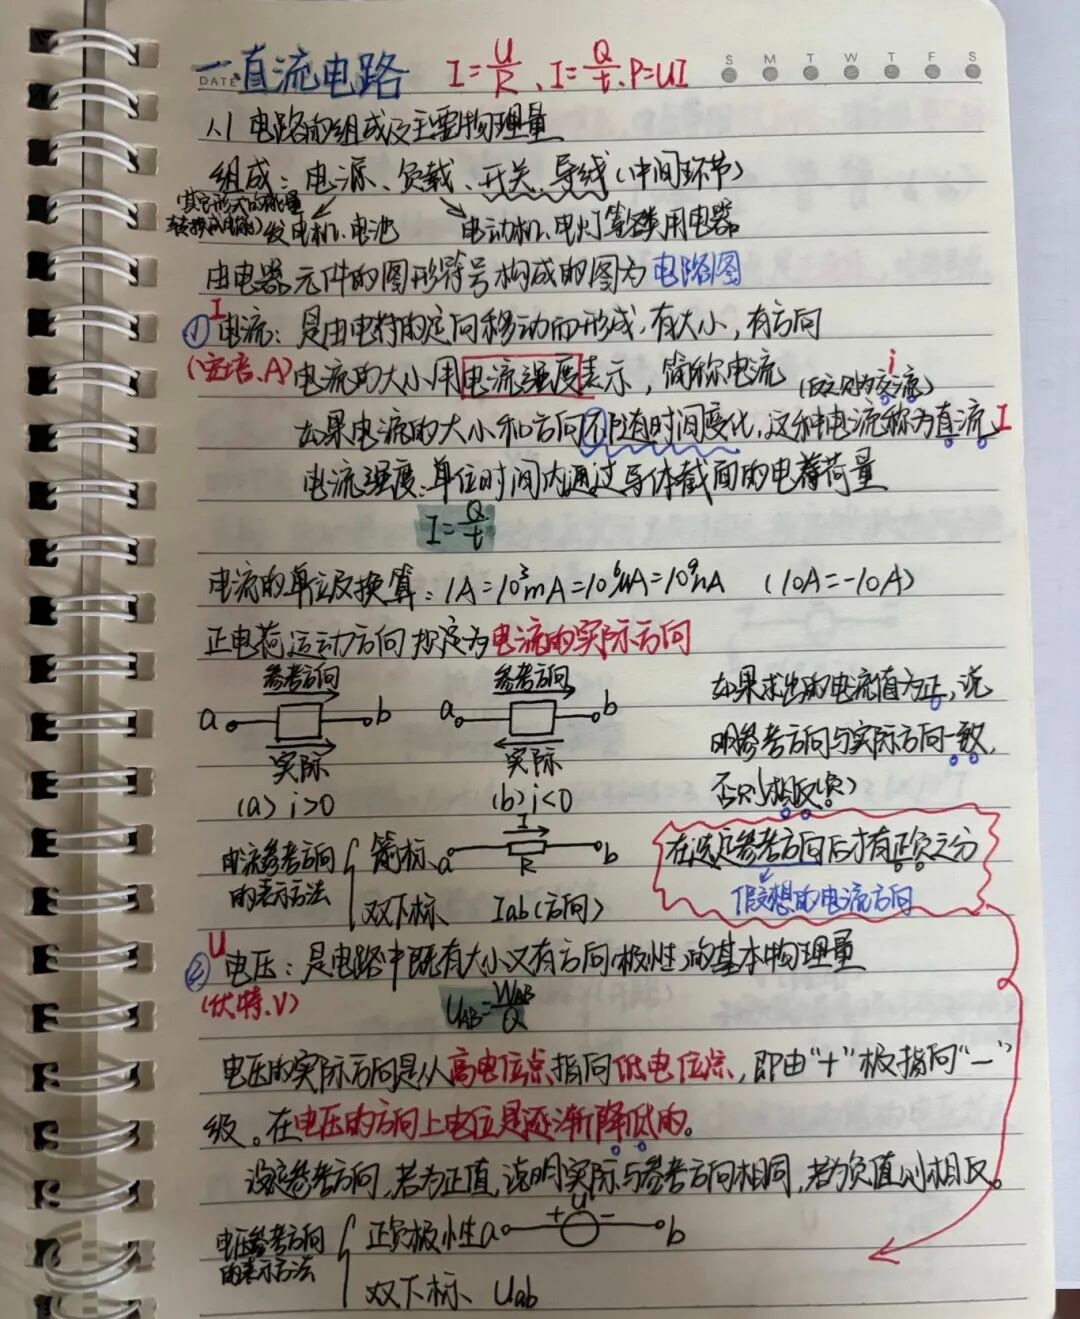 一、直流电路 I=U/R、I=Q/t、P=UI
DATE
S M T W T F S
1.1 电路的组成及主要物理量
组成：电源、负载、开关、导线（中间环节）
（其它形式的能量
转换成电能）发电机、电池 电动机、电灯等各类用电器
由电器元件的图形符号构成的图为电路图
I
①电流：是由电荷的定向移动而形成，有大小，有方向
（安培、A）电流的大小用电流强度表示，简称电流（反之则为交流） i
如果电流的大小和方向不随时间变化，这种电流称为直流 I
电流强度：单位时间内通过导体截面的电荷量
I=Q/t
电流的单位及换算：1A=10³mA=10⁶μA=10⁹nA （10A=-10A）
正电荷运动方向规定为电流的实际方向
参考方向 参考方向
a b a b
实际 实际
(a) i>0 (b) i<0
如果求出的电流值为正，说
明参考方向与实际方向一致，
否则相反（负）
电流参考方向
的表示方法
箭标、 a I R b
双下标、 Iab（方向）
在选定参考方向后才有正负之分
假想的电流方向
U
②电压：是电路中既有大小又有方向（极性）的基本物理量
（伏特、V） UAB=WAB/Q
电压的实际方向是从高电位点指向低电位点，即由“+”极指向“-”
级。在电压的方向上电位是逐渐降低的。
设定参考方向，若为正值，说明实际与参考方向相同，若为负值则相反。
电压参考方向
的表示方法
正负极性 a + U - b
双下标、 Uab